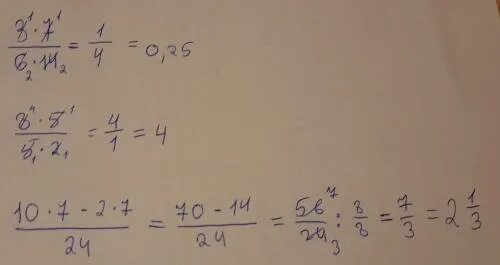 3¹·7¹/6₂·14₂ = 1/4 = 0,25
8⁴·5¹/5₁·2₁ = 4/1 = 4
10·7-2·7/24 = 70-14/24 = 56⁷/24₃ : 8/8 = 7/3 = 2 1/3